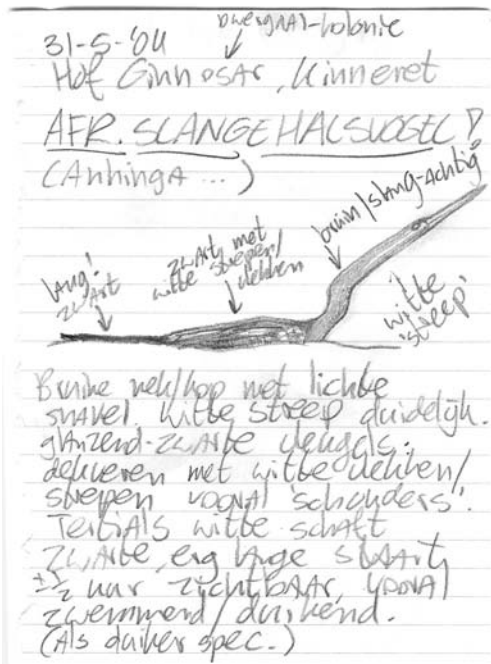 dwergaal-kolonie
31-5-'04
Hof Ginnosar, Kinneret
AFR. SLANGEHALSVOGEL!
(Anhinga ...)
bruin/slang-achtig
zwart, met
witte strepen/
vlekken
lang!
zwart
witte
'streep'
Bruine nek/kop met lichte
snavel. Witte streep duidelijk.
glanzend-zwarte vleugels.
dekveren met witte vlekken/
strepen vooral 'schouders'.
Tertials witte schaft
zwarte, erg lange staart,
± ½ uur zichtbaar, vooral
zwemmend/duikend.
(Als duiker spec.)